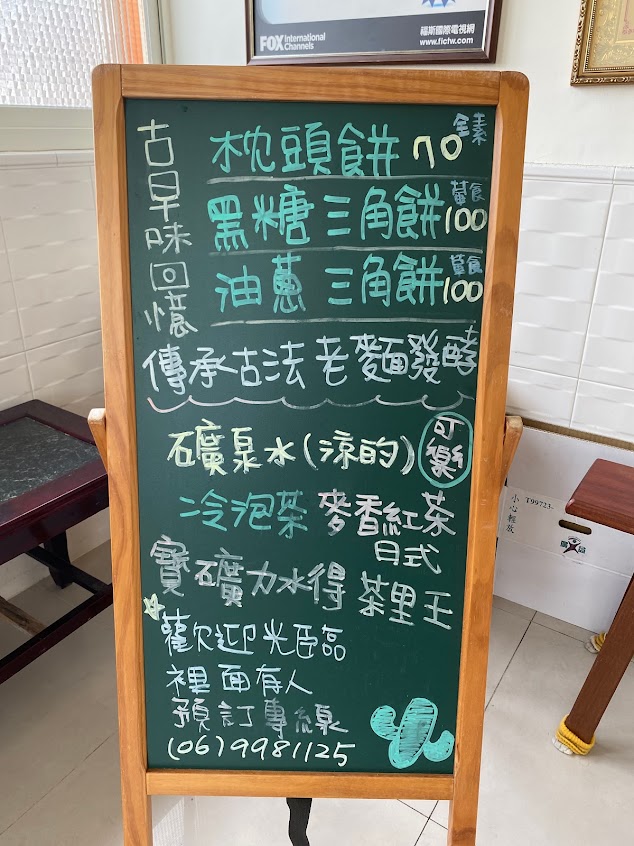 FOX International
Channels
福斯國際電視網
www.fictw.com
古早味回憶
枕頭餅 70 全素
黑糖三角餅 100 葷食
油蔥三角餅 100 葷食
傳承古法老麵發酵
礦泉水(涼的) 可樂
冷泡茶 麥香紅茶
日式
寶礦力水得 茶里王
歡迎光臨
裡面有人
預訂專線
(06)9981125
小心輕放
T99723-